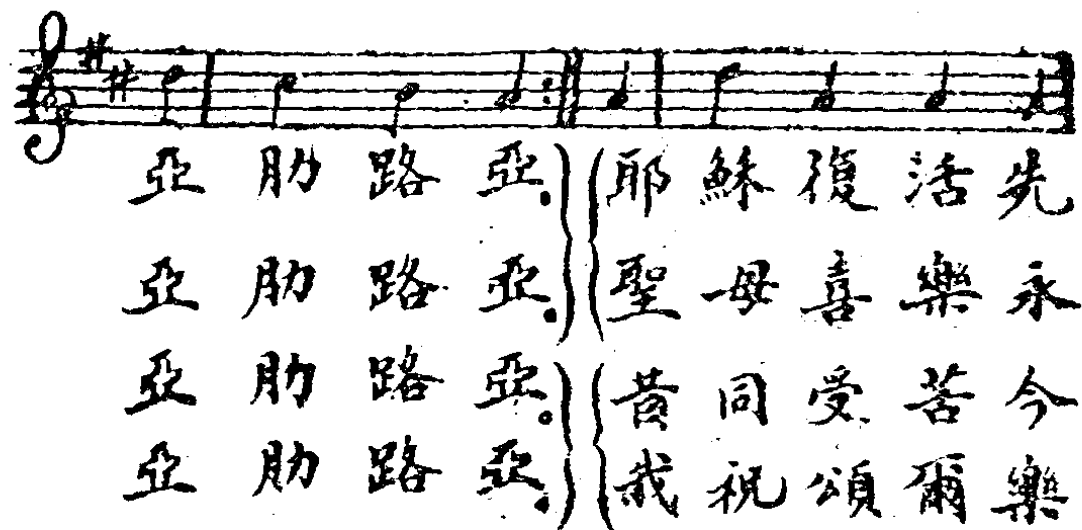 亞肋路亞.耶穌復活先
亞肋路亞.聖母喜樂永
亞肋路亞.昔同受苦今
亞肋路亞.我祝頌爾樂